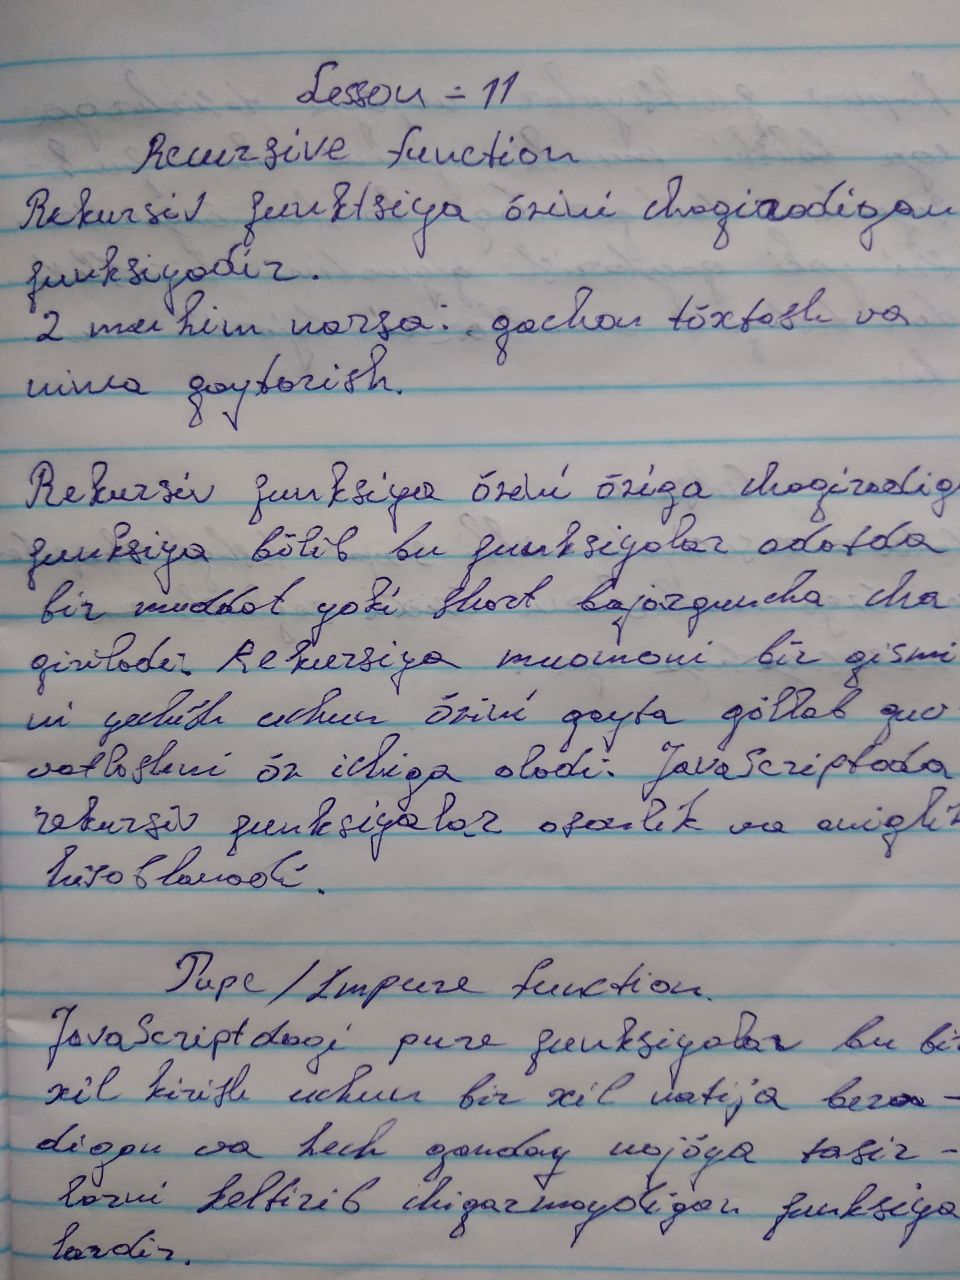 Lesson - 11
Recursive function
Rekursiv funktsiya õzini chagiradigan
funksiyadir.
2 muhim narsa: qachon tõxtash va
nima qaytarish.
Rekursiv funksiya õzini õziga chagiradig
funksiya bõlib bu funksiyalar odatda
bir muddat yoki short bajarguncha cha
qiriladi. Rekursiya muamoni bir qismi
ni yechish uchun õzini qayta qõllab quv
vatlashni õz ichiga oladi. JavaScriptada
rekursiv funksiyalar osanlik va aniqlik
hisoblanadi.
Pure / Impure function.
JavaScriptdagi pure funksiyalar bu bir
xil kirish uchun bir xil natija bera-
digan va hech qanday nojõya tasir-
larni keltirib chiqarmaydigan funksiya
lardir.